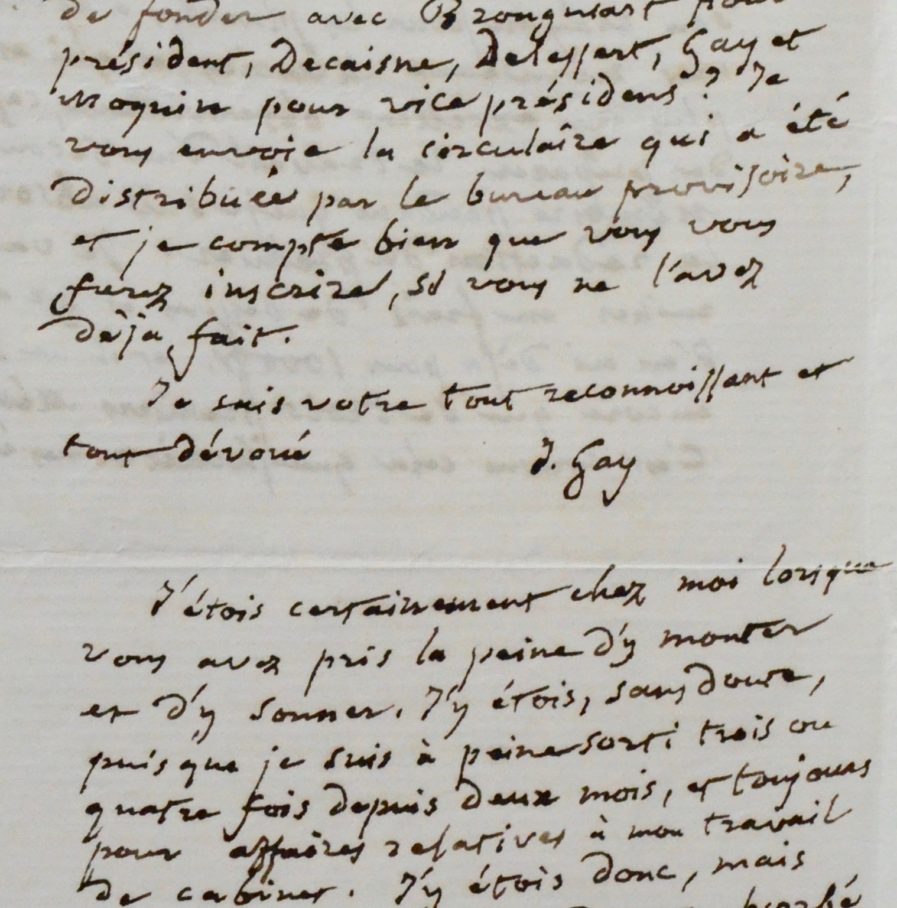 de fonder avec Brongniart pour
président, Decaisne, Delessert, Gay et
Moquin pour vice présidens? Je
vous envoie la circulaire qui a été
distribuée par le bureau provisoire,
et je compte bien que vous vous
ferez inscrire, si vous ne l'avez
déja fait.
Je suis votre tout reconnoissant et
tout dévoué
J. Gay
J'étois certainement chez moi lorsque
vous avez pris la peine d'y monter
et d'y sonner. J'y étois, sans doute,
puisque je suis à peine sorti trois ou
quatre fois depuis deux mois, et toujours
pour affaires relatives à mon travail
de cabinet. J'y étois donc, mais